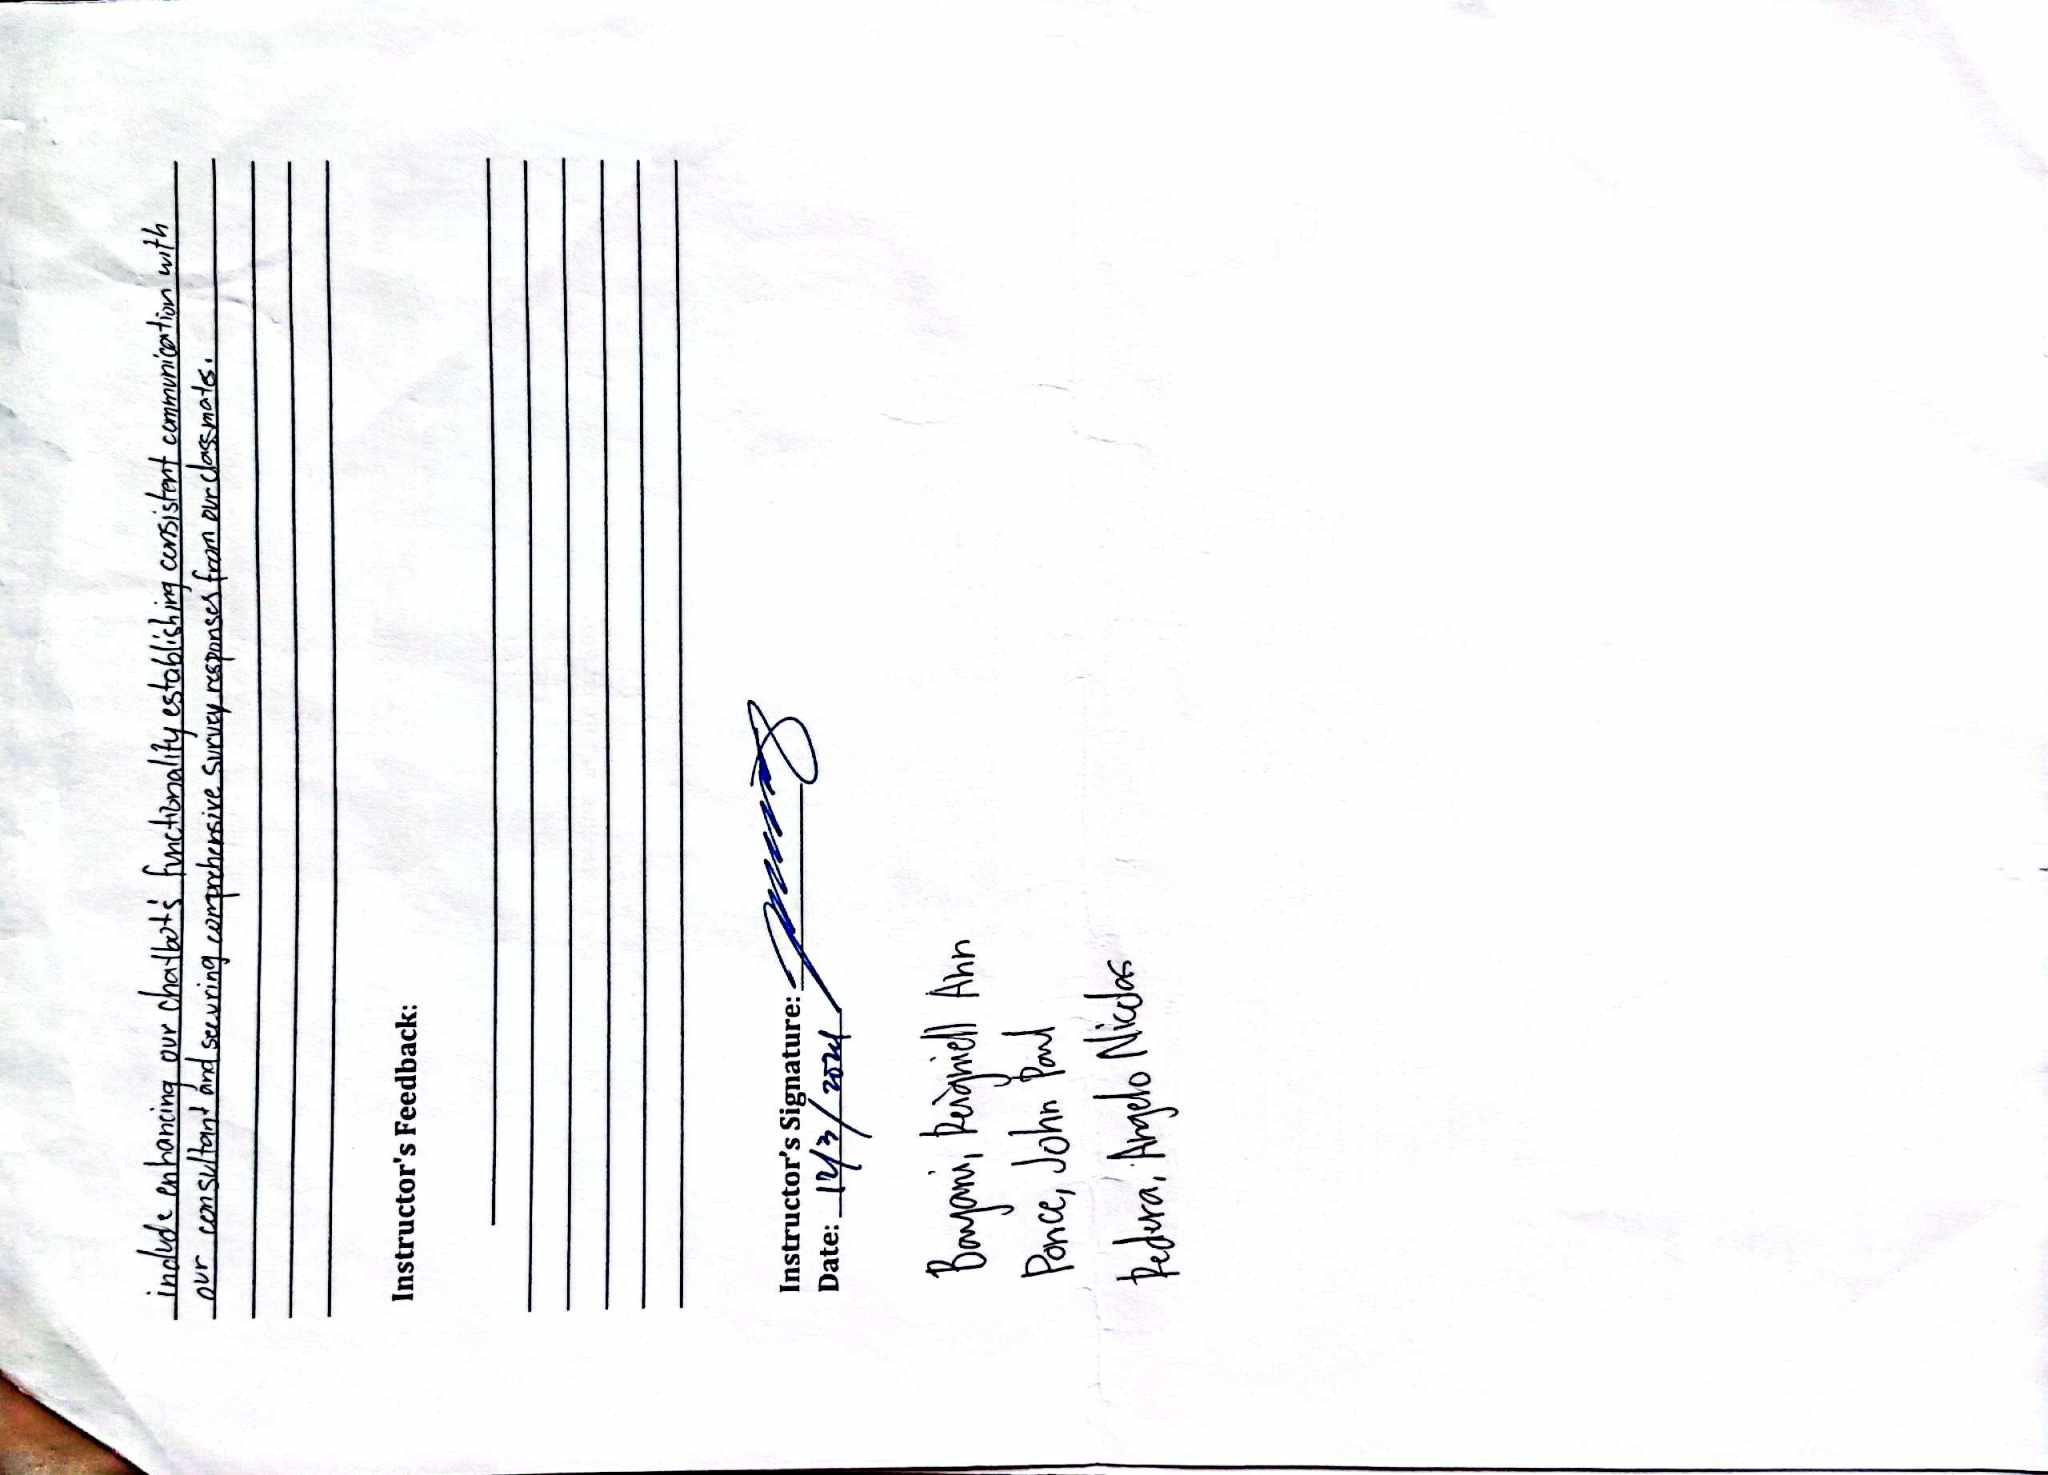 include enhancing our chatbot's functionality establishing consistent communication with
our consultant and securing comprehensive survey responses from our classmates.
Instructor's Feedback:
Instructor's Signature:
Date: 12/3/2024
Bayani, Reigniell Ann
Ponce, John Paul
Redera, Angelo Nicolas